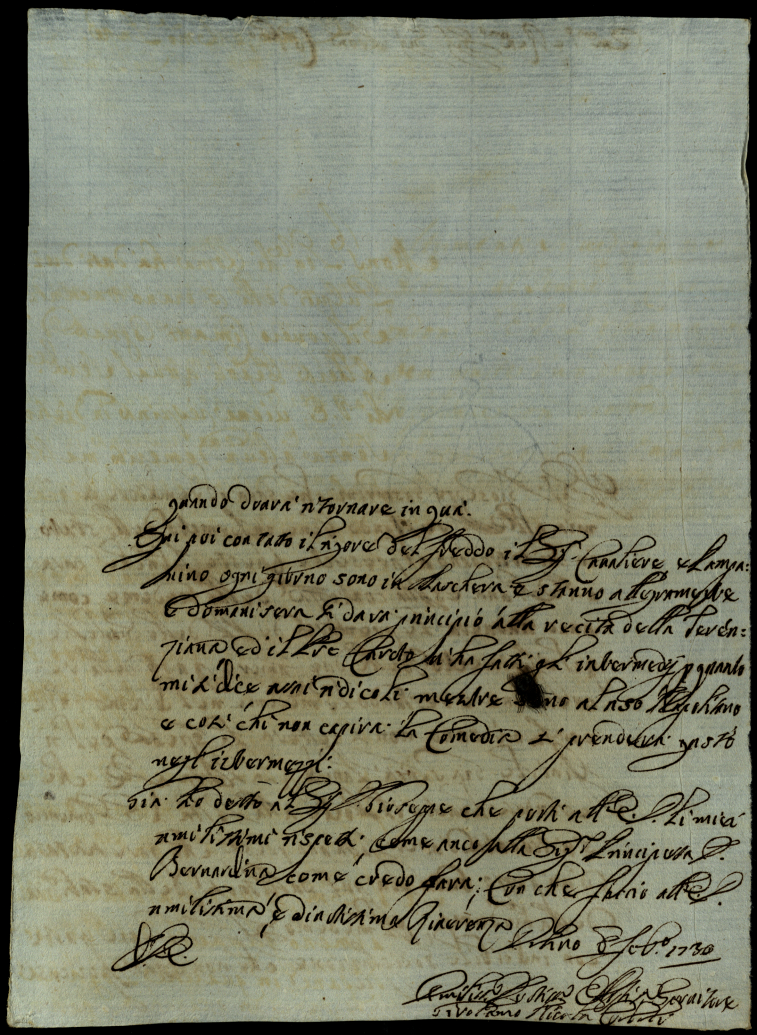 quando dovrà ritornare in quà.
Qui poi con tutto il rigore del freddo il Sig.r Cavaliere e
nino ogni giorno sono in Maschera e stanno allegramente
e domani sera si darà principio alla recita della Teren=
ziana ed il Pre li ha fatti gli intermedij p quanto
mi si dice assai ridicoli mentre sono al uso Napolitano
e così chi non capirà la Comedia si prenderà gusto
negl'intermezzi:
Già ho detto al Sig.r Giuseppe che porti all'E. V. li miei
umilissimi rispetti come anco alla Sig.ra Principessa D.
Bernardina come credo farà: Con che faccio all'E. V.
umilissima, e Riverenza
8 Feb.o 1730
V. E.
Umiliss.o Servitore
Girolamo Nicola